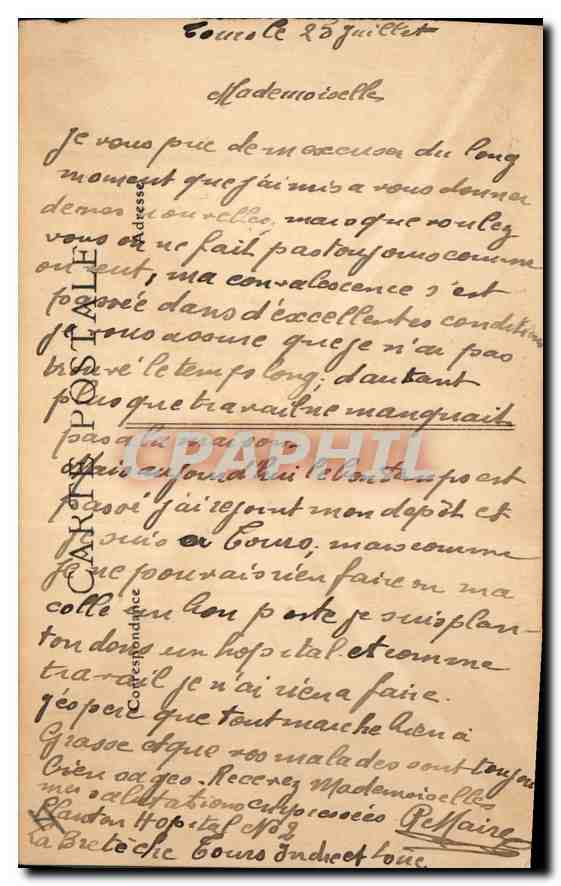 Tours le 25 Juillet
Mademoiselle
Je vous prie de m'excuser du long
moment que j'ai mis a vous donner
de mes nouvelles, mais que voulez
vous on ne fait pas toujours comme
on veut, ma convalescence s'est
passée dans d'éxcellentes conditions
je vous assure que je n'ai pas
trouvé le temps long, d'autant
plus que travail ne manquait
pas a la maison
Mais aujourd'hui le bon temps est
passé j'ai rejoint mon depôt et
je suis a Tours, mais comme
je ne pouvais rien faire on ma
collé un bon poste je suis plan-
ton dans un hopital et comme
travail je n'ai rien a faire.
J'éspere que tout marche bien a
Grasse et que vos malades sont toujours
bien sages. Recevez Mademoiselle
mes salutations empressées
Planton Hopital No 2 Maire
La Bretèche Tours Indre et Loire
CARTE POSTALE
Correspondance
Adresse
CPAPHIL